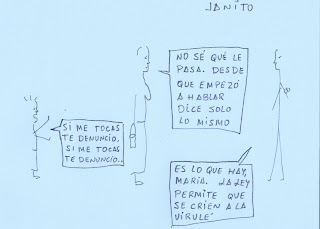 JANITO
NO SÉ QUÉ LE
PASA. DESDE
QUE EMPEZÓ
A HABLAR
DICE SOLO
LO MISMO
SI ME TOCAS
TE DENUNCIO,
SI ME TOCAS
TE DENUNCIO..
ES LO QUE HAY,
MARÍA. LA LEY
PERMITE QUE
SE CRIEN A LA
VIRULÉ